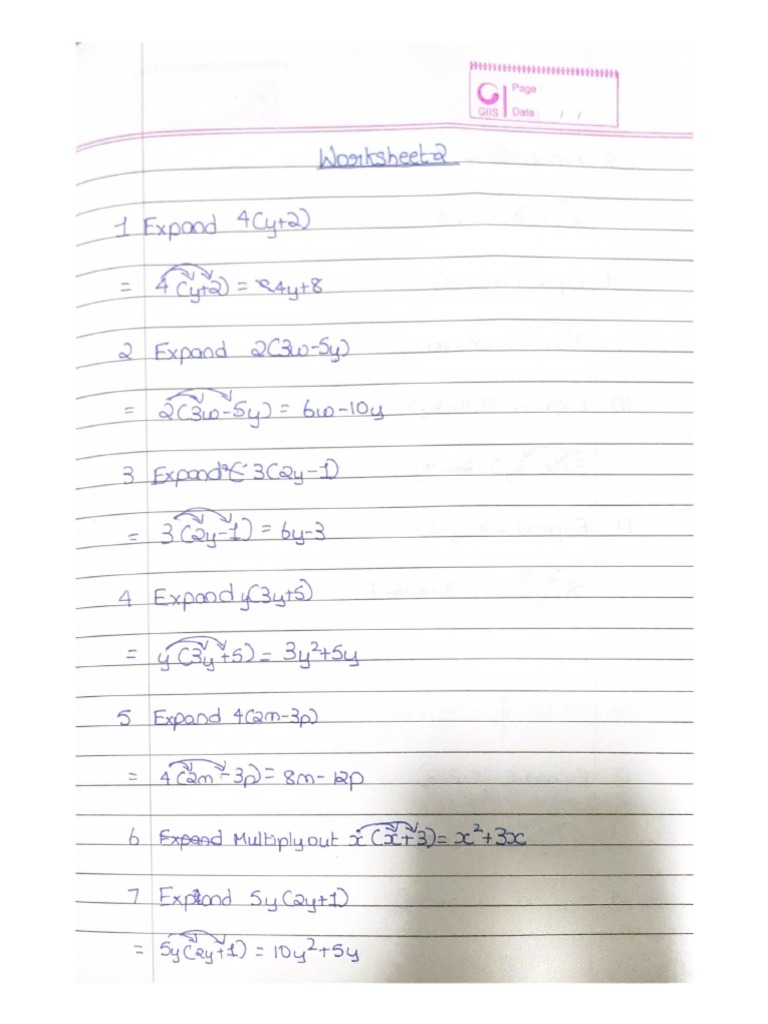 GIIS
Page :
Date : / /
Worksheet 2
1 Expand 4(y+2)
= 4(y+2) = 4y+8
2 Expand 2(3w-5y)
= 2(3w-5y) = 6w-10y
3 Expand 3(2y-1)
= 3(2y-1) = 6y-3
4 Expand y(3y+5)
= y(3y+5) = 3y²+5y
5 Expand 4(2m-3p)
= 4(2m-3p) = 8m-12p
6 Expand Multiply out x(x+3) = x²+3x
7 Expand 5y(2y+1)
= 5y(2y+1) = 10y²+5y